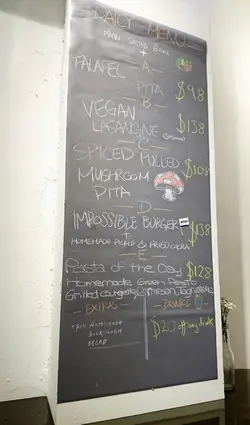 DAILY MENU
MINI SALAD BOWL
+
FALAFEL - A -
PITA $98
- B -
VEGAN
LASANGNE $138
- C -
SPICED PULLED $108
MUSHROOM
PITA
- D -
IMPOSSIBLE BURGER $138
+
HOMEMADE PICKLE & FRIED OKRA
- E -
Pasta of the Day $128
Homemade Green Pesto
Grilled Courgette
- EXTRAS - - DRINKS -
$20 off any drink